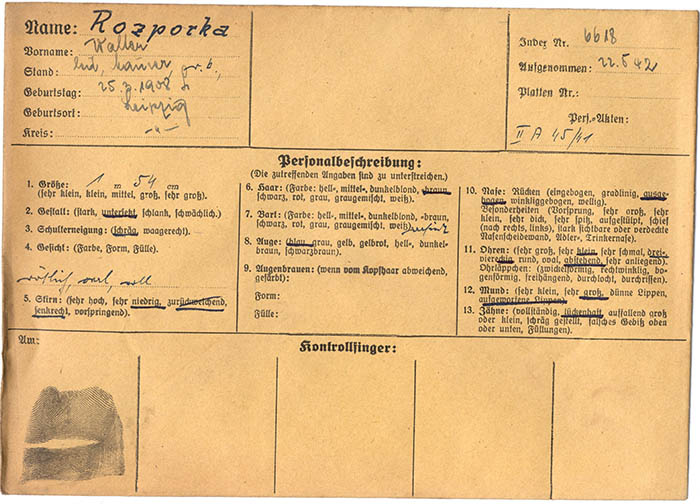 Name: Rozporka
Vorname: Walter
Stand: led.
Geburtstag: 25. 1908
Geburtsort: Leipzig
Kreis: -"-
Index Nr. 6618
Aufgenommen: 22.542
Platten Nr.:
Pers.-Akten:
II A 45/41
Personalbeschreibung:
(Die zutreffenden Angaben sind zu unterstreichen.)
1. Größe: 1 m 54 cm
(sehr klein, klein, mittel, groß, sehr groß).
2. Gestalt: (stark, untersetzt, schlank, schwächlich.)
3. Schulterneigung: (schräg, waagerecht).
4. Gesicht: (Farbe, Form, Fülle).
rötlich oval, voll
5. Stirn: (sehr hoch, sehr niedrig, zurückweichend,
senkrecht, vorspringend).
6. Haar: (Farbe: hell-, mittel-, dunkelblond, braun,
schwarz, rot, grau, graugemischt, weiß).
7. Bart: (Farbe: hell-, mittel-, dunkelblond, -braun,
schwarz, rot, grau, graugemischt, weiß)
8. Auge: (blau, grau, gelb, gelbrot, hell-, dunkel-
braun, schwarzbraun).
9. Augenbrauen: (wenn vom Kopfhaar abweichend,
gefärbt):
Form:
Fülle:
10. Nase: Rücken (eingebogen, gradlinig, ausge-
bogen, winkliggebogen, wellig).
Besonderheiten (Vorsprung, sehr groß, sehr
klein, sehr dick, sehr spitz, aufgestülpt, schief
(nach rechts, links), stark sichtbare oder verdeckte
Nasenscheidewand, Adler-, Trinkernase).
11. Ohren: (sehr groß, sehr klein, sehr schmal, drei-
viereckig, rund, oval, abstehend, sehr anliegend).
Ohrläppchen: (zwickelförmig, rechtwinklig, bo-
genförmig, freihängend, durchlocht, durchrissen).
12. Mund: (sehr klein, sehr groß, dünne Lippen,
aufgeworfene Lippen)
13. Zähne: (vollständig, lückenhaft, auffallend groß
oder klein, schräg gestellt, falsches Gebiß oben
oder unten, Füllungen).
Am:
Kontrollfinger: